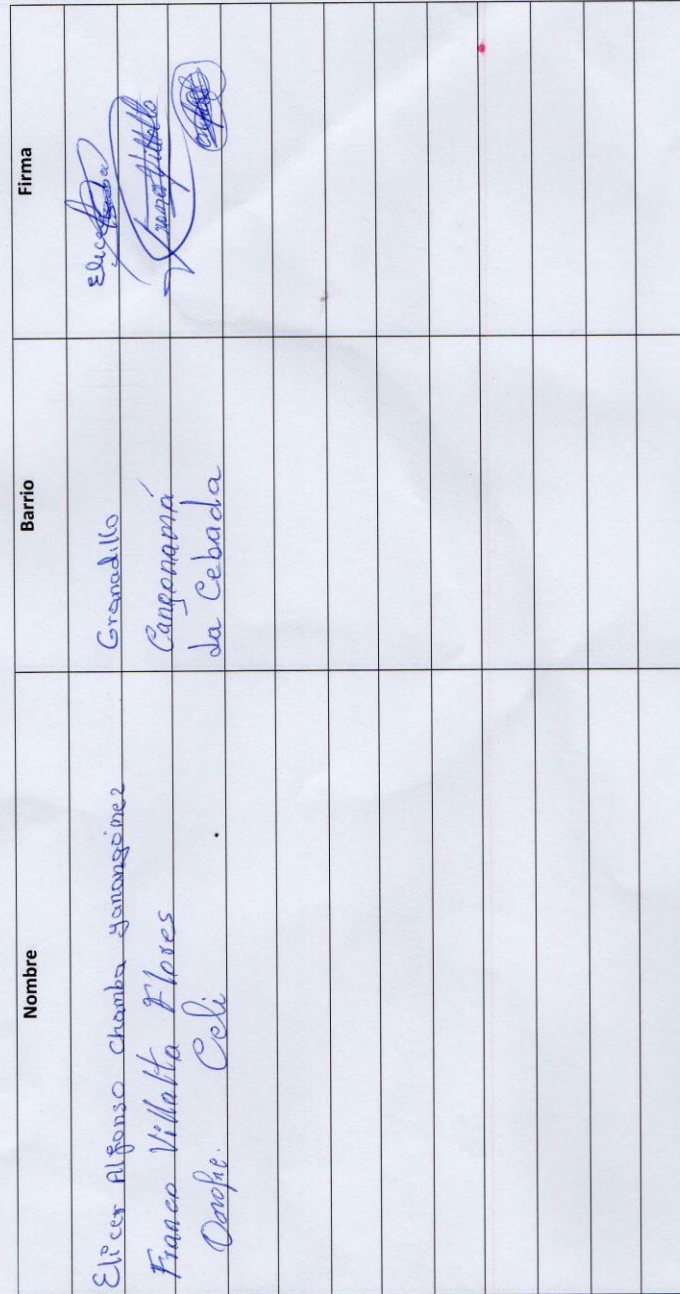 Nombre Barrio Firma
Elicer Alfonso Chamba yanangómez Granadillo
Franco Villalta Flores Cangonamá Franco Villalta
Celi La Cebada